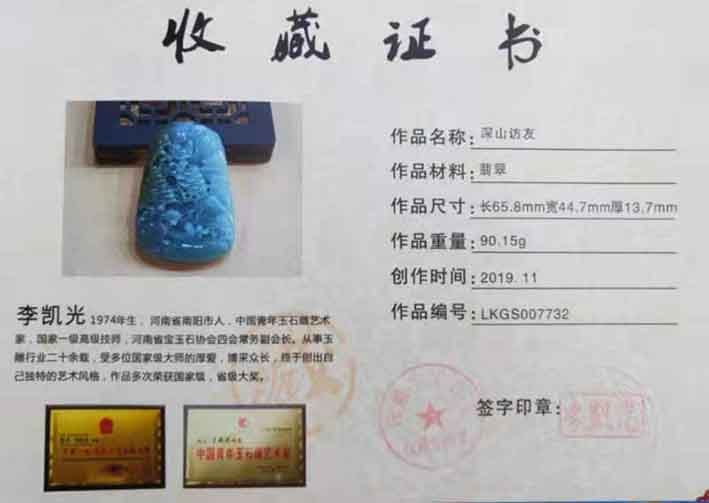 收藏证书
作品名称：深山访友
作品材料：翡翠
作品尺寸：长65.8mm宽44.7mm厚13.7mm
作品重量：90.15g
创作时间：2019.11
作品编号：LKGS007732
李凯光 1974年生，河南省南阳市人，中国青年玉石雕艺术
家，国家一级高级技师，河南省宝玉石协会四会常务副会长。从事玉
雕行业二十余载，受多位国家级大师的厚爱，博采众长，终于创出自
己独特的艺术风格，作品多次荣获国家级，省级大奖。
中国青年玉石雕艺术家
签字印章：